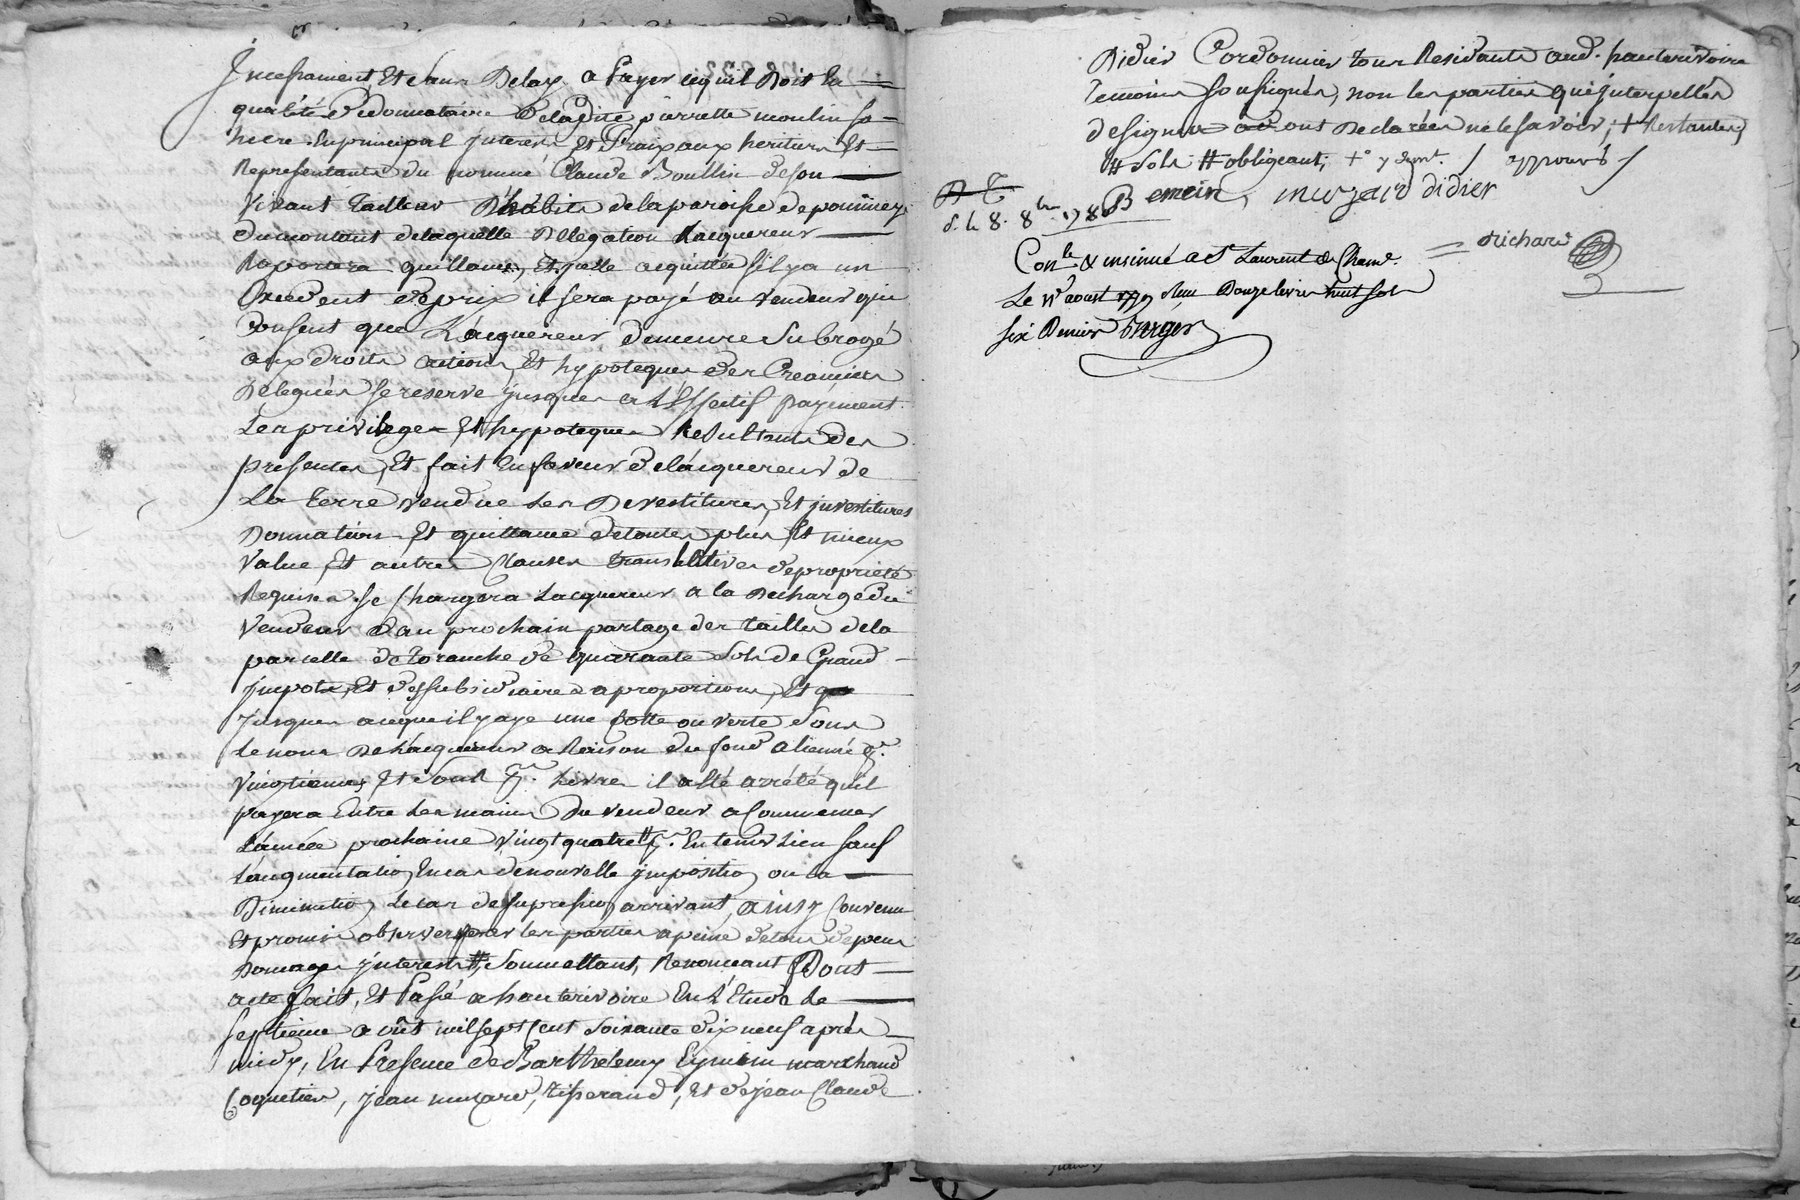 Incessament, Et sans Delay a payer ce quil Doit En
qualité de donnataire De ladite pierrette moulin sa
mere En principal Interets Et fraix aux heritiers Et
Representants du nommé Claude Boullin de son
Vivant tailleur D'habits de la paroisse de pouilly
Du montant de laquelle Delegation Lacquereur
Raportera quillance, Et icelle acquittée s'il y a un
Excedent de prix il sera payé au vendeur qui
Consent que L'acquereur, demeure subrogé
aux droits actions Et hypoteques des Creanciers
Delegués se reserve jusques a L'Effectif payement
Les privileges Et hypoteques Resultants des
presentes, Et fait En faveur de l'acquereur de
La terre vendue Les Devestitures, Et investitures
Donnation Et quittance de toutes plus Et mieux
Value Et autres Clauses translatives de propriété
Requises. Se Chargera Lacquereur a la Decharge du
Vendeur d'au prochain partage des tailles de la
parcelle de quarante Sols de Grand
Impots, Et des subsidiaires a proportion, Et
Jusques a ce qu'il y aye une Cotte ouverte sous
Le nom De Lacquereur a Raison du fond alienné
Vingtiemes Et il a Eté arrété quil
payera Entre Les mains Du vendeur a Commencer
L'année prochaine vingt quatre En tems Lieu sauf
L'augmentatio En cas de nouvelle impositio ou la
Diminutio Le cas de supressio arrivant, ainsy Convenu
Et promis observer par les parties a peine de tous depens
Domages interests #, Soumettant, Renonceant Dont
acte fait, Et Passé a hauterivoire En L'Etude Le
septieme aoüt mil sept Cent soixante dix neuf après
midy, En Presence de Barthelemy marchand
Coquetier, Jean muzard, tisserand, Et de jean Claude
Didier Cordonnier tous Residants aud. hauterivoire
temoins soussignés, non les parties qui interpellés
de signer ont Declarées ne le savoir; + Restantes
# Sols # obligeant; approuvés
muzard didier
d. le 8. 8bre 178
Richard
Conle & insinué a St Laurent de Cham.
Le 11 aoust 1779 Reçu Douze livres huit sols
six Deniers